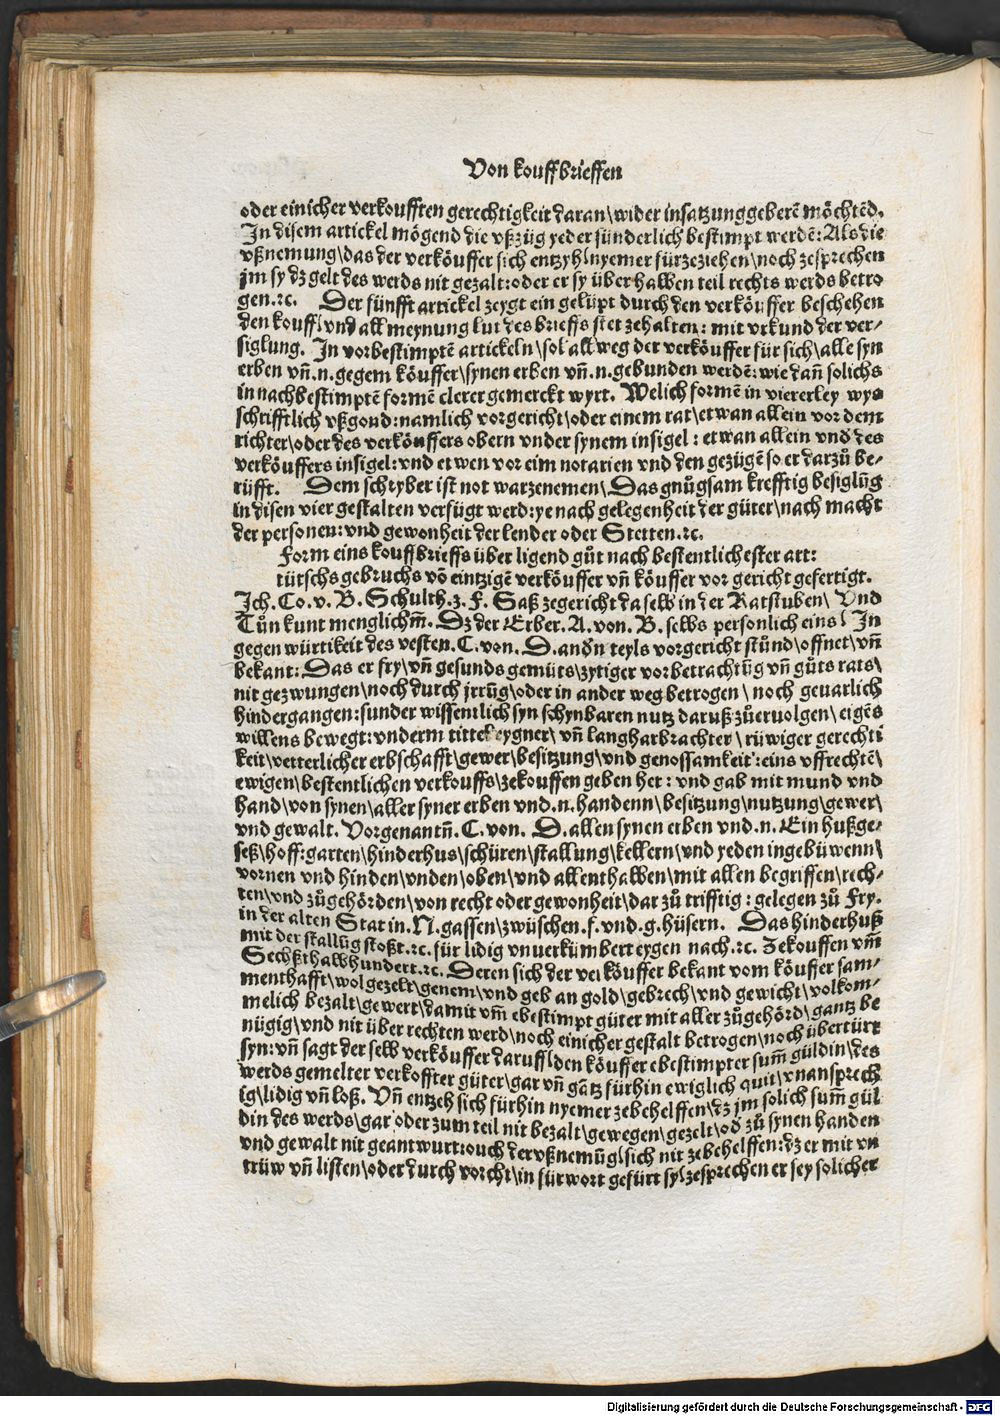 Von kouffbrieffen
oder einicher verkoufften gerechtigkeit daran\wider insatzung geberē möchtēd.
In disem artickel mögend die vßzüg yeder sünderlich bestimpt werdē: Als die
vßnemung\das der verköuffer sich entzyh\nyemer fürzeziehen\noch zesprechen
jm sy dz gelt des werds nit gezalt:oder er sy über halben teil rechts werds betro
gen.ꝛc. Der fünfft artickel zeygt ein gelüpt durch den verköuffer beschehen
den kouff\vnd all meynung lut des brieffs stet zehalten: mit vrkund der ver⸗
siglung. In vorbestimptē artickeln\sol allweg der verköuffer für sich\alle syn
erben vñ.n.gegem köuffer\synen erben vñ.n.gebunden werdē: wie dañ solichs
in nachbestimptē formē clerer gemerckt wyrt. Welich formē in viererley wys
schrifftlich vßgond: namlich vorgericht\oder einem rat\etwan allein vor dem
richter\oder des verköuffers obern vnder synem insigel: etwan allein vnd̕ des
verköuffers insigel:vnd etwen vor eim notarien vnd den gezügē so er darzů be⸗
rüfft. Dem schryber ist not warzenemen\Das gnůgsam krefftig besiglūg
in disen vier gestalten verfügt werd:ye nach gelegenheit der güter\nach macht
der personen:vnd gewonheit der lender oder Stetten.ꝛc.
Form eins kouffbrieffs über ligend gůt nach bestentlichester art:
tütschs gebruchs vō eintzigē verköuffer vñ köuffer vor gericht gefertigt.
Jch. Co. v. B. Schulth. z. F. Saß zegericht daselb in der Ratstuben\ Vnd
Tůn kunt menglichm̄. Dz der Erber. A. von. B. selbs personlich eins\ In
gegenwürtikeit des vesten. C. von. D. and̕n teyls vorgericht stůnd\offnet\vñ
bekant: Das er fry\vñ gesunds gemüts\zytiger vorbetrachtūg vñ gůts rats\
nit gezwungen\noch durch jrrūg\oder in ander weg betrogen\ noch geuarlich
hindergangen:sunder wissentlich syn schynbaren nutz daruß zůeruolgen\eigēs
willens bewegt:vnderm tittel eygner\ vñ langharbrachter\ rüwiger gerechti
keit\vetterlicher erbschafft\gewer\besitzung\vnd genossamkeit:eins vffrechtē\
ewigen\bestentlichen verkouffs\zekouffen geben her: vnd gab mit mund vnd
hand\von synen\aller syner erben vnd.n. handenn\besitzung\nutzung\gewer\
vnd gewalt. Vorgenantñ. C. von. D. allen synen erben vnd.n. Ein hußge⸗
seß\hoff:garten\hinderhus\schüren\stallung\kellern\vnd yeden ingebüwenn\
vornen vnd hinden\vnden\oben\vnd allenthalben\mit allen begriffen\rech⸗
ten\vnd zůgehörden\von recht oder gewonheit\dar zů trifftig: gelegen zů Fry.
in der alten Stat in. N. gassen\zwüschen. f. vnd. g. hüsern. Das hinderhuß
mit der stallūg stoßt.ꝛc. für lidig vnuerkümbert eygen nach.ꝛc. Zekouffen vm̄
Sechßthalbhundert.ꝛc. Deren sich der verköuffer bekant vom köuffer sam⸗
menthafft\wolgezelt\genem\vnd geb an gold\gebrech\vnd gewicht\volkom⸗
melich bezalt\gewert\damit vm̄ ebestimpt güter mit aller zůgehörd\gantz be
nügig\vnd nit über rechten werd\noch einicher gestalt betrogen\noch übertürt
syn:vñ sagt der selb verköuffer daruff\den köuffer ebestimpter sum̄ güldin\des
werds gemelter verkoffter güter\gar vñ gātz fürhin ewiglich quit\vnansprech
ig\lidig vñ loß. Vñ entzeh sich fürhin nyemer zebehelffen\dz jm solich sum̄ gül
din des werds\gar oder zum teil nit bezalt\gewegen\gezelt\od̕ zů synen handen
vnd gewalt nit geantwurt:ouch der vßnemūg\sich nit zebehelffen:dz er mit vn
trüw vñ listen\oder durch vorcht\in fürwort gefürt sy\zesprechen er sey solicher
Digitalisierung gefördert durch die Deutsche Forschungsgemeinschaft - DFG